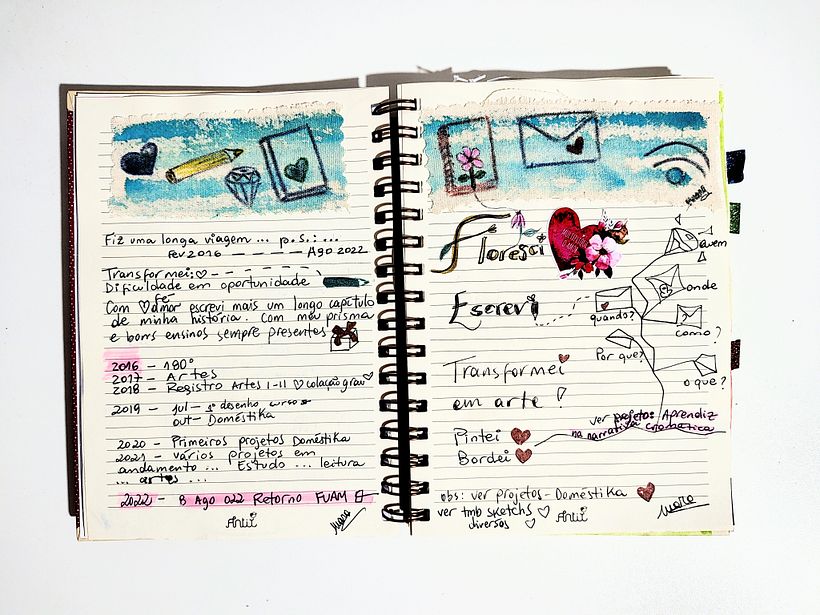 Fiz uma longa viagem ... p.s.: ...
Fev 2016 — — — — — Ago 2022
Transformei:
Dificuldade em oportunidade
Com fé amor escrevi mais um longo capítulo
de minha história. Com meu prisma
e bons ensinos sempre presentes
2016 - 180°
2017 - Artes
2018 - Registro Artes I-II colação grau
2019 - jul - 1º desenho curso
out - Doméstika
2020 - Primeiros projetos Doméstika
2021 - vários projetos em
andamento ... Estudo ... leitura
... artes ...
2022 - 8 Ago 022 Retorno FUAM
Floresci
Escrevi
Transformei
em arte!
Pintei
Bordei
quem
onde
quando?
como?
Por que?
o que?
ver projeto: Aprendiz
na narrativa cromática
obs: ver projetos - Doméstika
ver tmb sketchs
diversos